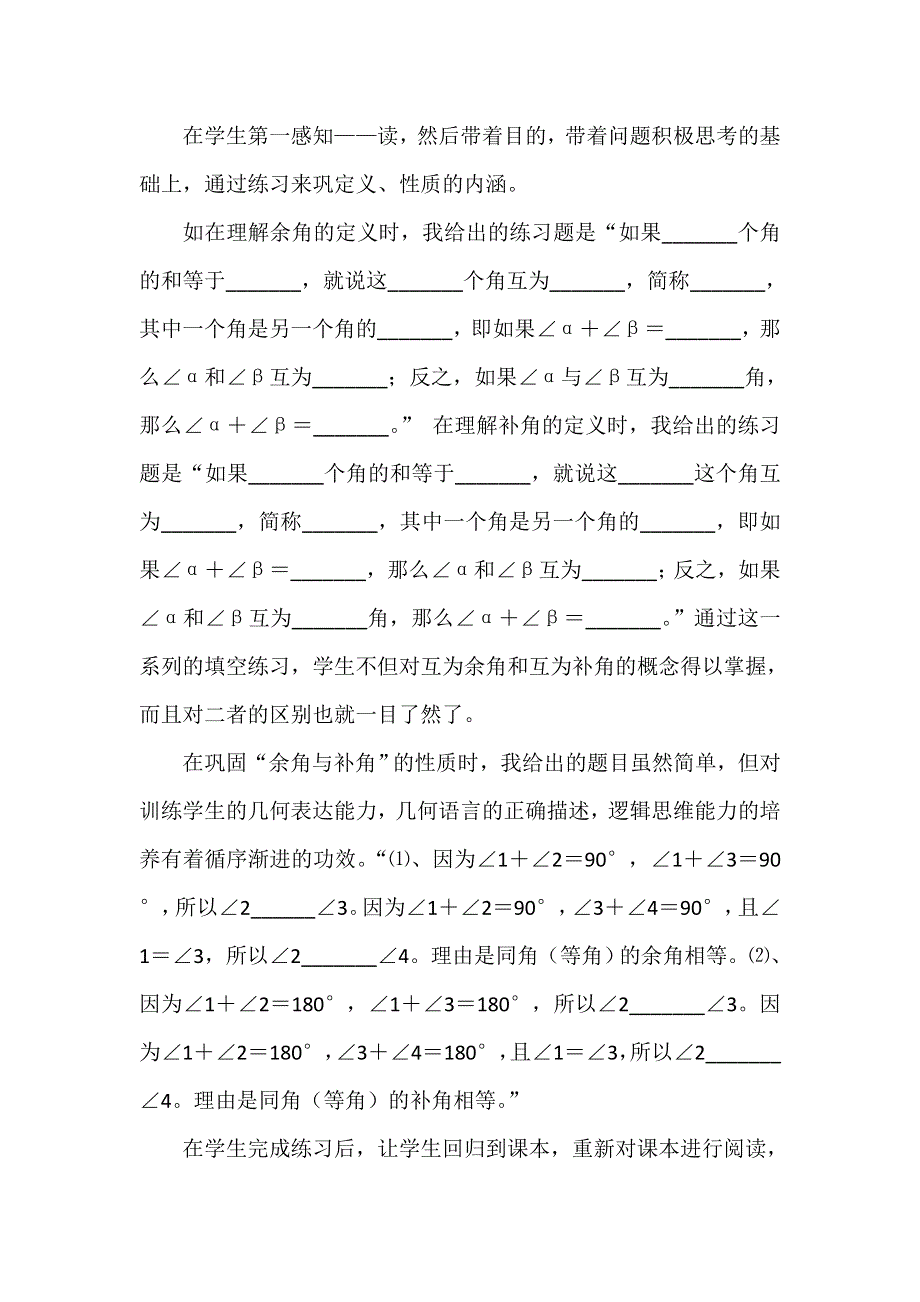 在学生第一感知——读，然后带着目的，带着问题积极思考的基
础上，通过练习来巩定义、性质的内涵。
如在理解余角的定义时，我给出的练习题是“如果_______个角
的和等于_______，就说这_______个角互为_______，简称_______，
其中一个角是另一个角的_______，即如果∠α＋∠β＝_______，那
么∠α和∠β互为_______；反之，如果∠α与∠β互为_______角，
那么∠α＋∠β＝_______。” 在理解补角的定义时，我给出的练习
题是“如果_______个角的和等于_______，就说这_______这个角互
为_______，简称_______，其中一个角是另一个角的_______，即如
果∠α＋∠β＝_______，那么∠α和∠β互为_______；反之，如果
∠α和∠β互为_______角，那么∠α＋∠β＝_______。”通过这一
系列的填空练习，学生不但对互为余角和互为补角的概念得以掌握，
而且对二者的区别也就一目了然了。
在巩固“余角与补角”的性质时，我给出的题目虽然简单，但对
训练学生的几何表达能力，几何语言的正确描述，逻辑思维能力的培
养有着循序渐进的功效。“⑴、因为∠1＋∠2＝90°，∠1＋∠3＝90
°，所以∠2______∠3。因为∠1＋∠2＝90°，∠3＋∠4＝90°，且∠
1＝∠3，所以∠2_______∠4。理由是同角（等角）的余角相等。⑵、
因为∠1＋∠2＝180°，∠1＋∠3＝180°，所以∠2_______∠3。因
为∠1＋∠2＝180°，∠3＋∠4＝180°，且∠1＝∠3，所以∠2_______
∠4。理由是同角（等角）的补角相等。”
在学生完成练习后，让学生回归到课本，重新对课本进行阅读，